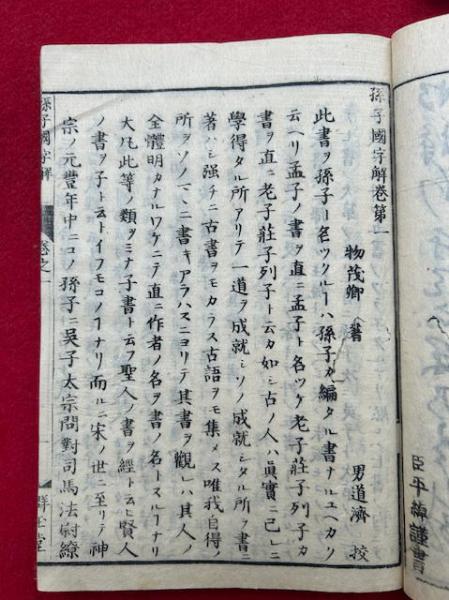 臣平緯謹書
孫子國字解卷第一
物茂卿　著　男道濟　校
此書ヲ孫子ト名ツクルハ孫子カ編タル書ナルユヘカク
云ヘリ孟子ノ書ヲ直ニ孟子ト名ツケ老子莊子列子カ
書ヲ直ニ老子莊子列子ト云カ如シ古ノ人ハ眞實ニ己レニ
學得タル所アリテ一道ヲ成就シソノ成就シタル所ヲ書ニ
著ハシ強チニ古書ヲモカラス古語ヲモ集メス唯我自得ノ
所ヲソノマヽニ書キアラハスニヨリテ其書ヲ觀レハ其人ノ
全體明カナルワケニテ直ニ作者ノ名ヲ書ノ名トスルナリ
大凡此等ノ類ヲミナ子書ト云フ聖人ノ書ヲ經ト云ヒ賢人
ノ書ヲ子ト云トイフモコノヿナリ而ルニ宋ノ世ニ至リテ神
宗ノ元豐年中ニコノ孫子ニ吳子太宗問對司馬法尉繚
孫子國字解
卷之一
群玉堂